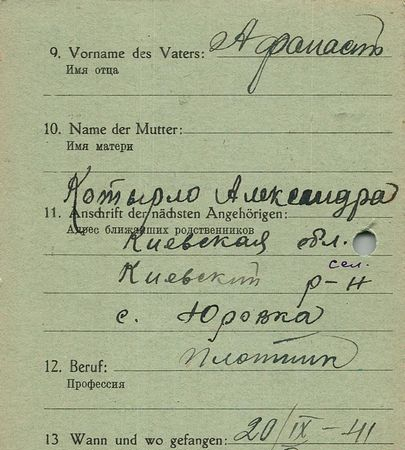 9. Vorname des Vaters: Афанасий
Имя отца
10. Name der Mutter:
Имя матери
Котырло Александра
11. Anschrift der nächsten Angehörigen:
Адрес ближайших родственников
Киевская обл.
сел.
Киевский р-н
с. Юровка
Плотник
12. Beruf:
Профессия
13 Wann und wo gefangen: 20/IX-41